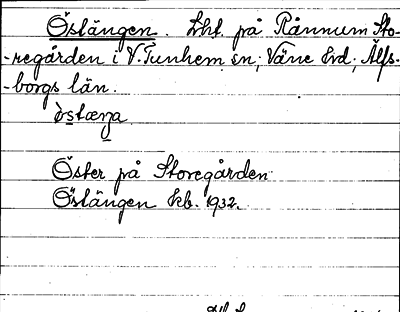 Östängen. Lht. på Rånnum Sto-
-regården i V. Tunhem sn; Väne hd; Älfs-
-borgs län.
östæŋa
Öster på Storegården
Östängen kb. 1932.